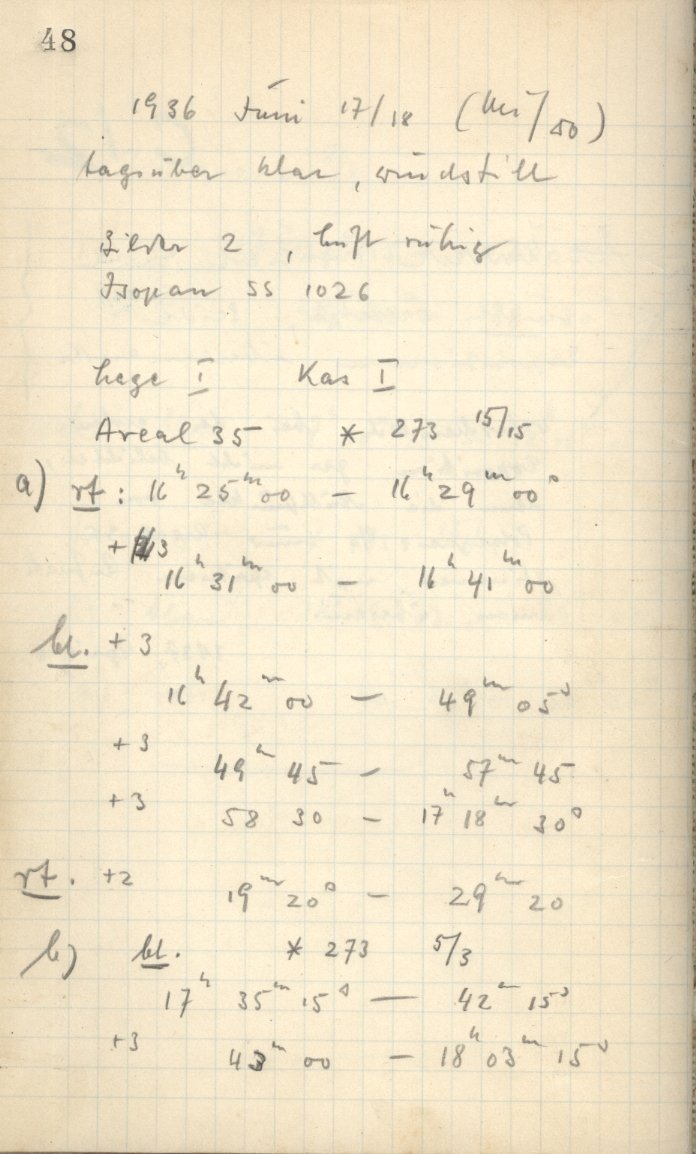 48
1936 Juni 17/18 (Mi/50)
tagsüber klar, windstill
Bilder 2, Luft ruhig
Isopan SS 1026
Lage I Kas I
Areal 35 * 273 15/15
a) rt: 16h 25m 00 – 16h 29m 00s
+ 3
16h 31m 00 – 16h 41m 00
bl. + 3
16h 42m 00 – 49m 05s
+ 3
49m 45 – 57m 45
+ 3
58 30 – 17h 18m 30s
rt. +2
19m 20s – 29m 20
b) bl. * 273 5/3
17h 35m 15s — 42m 15s
+3
43m 00 – 18h 03m 15s